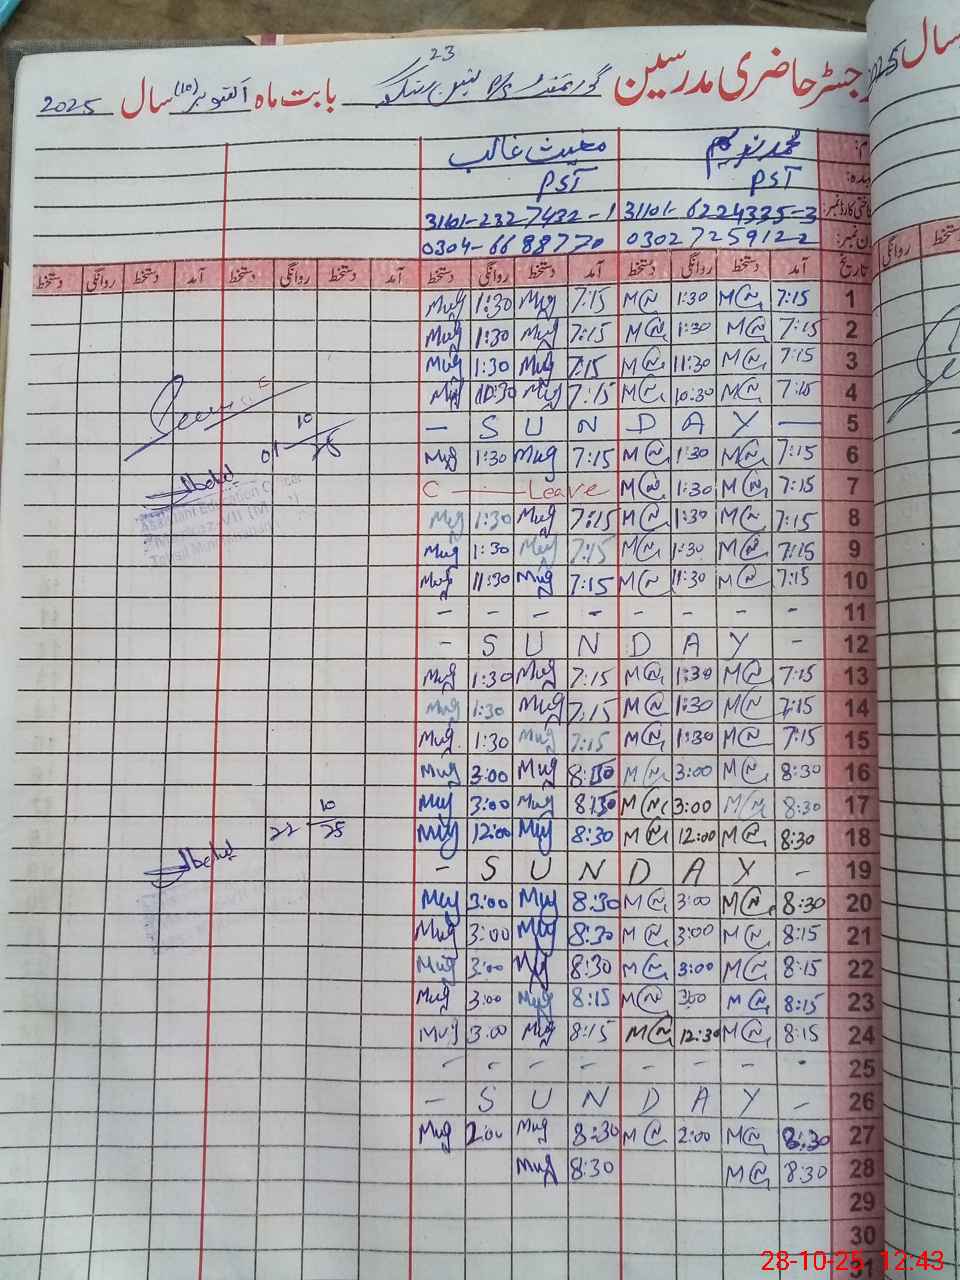 رجسٹر حاضری مدرسین گورنمنٹ P/S بابت ماہ اکتوبر (10) سال 2025
23
سال 2025
محمد ندیم مغیث غالب
عہدہ: PST PST
شناختی کارڈ نمبر: 31101-6224335-3 31101-2327432-1
فون نمبر: 03027259122 0304-6688770
تاریخ آمد دستخط روانگی دستخط آمد دستخط روانگی دستخط آمد دستخط روانگی دستخط آمد دستخط روانگی دستخط
1 7:15 M@ 1:30 M@ 7:15 Mug 1:30 Mug
2 7:15 M@ 1:30 M@ 7:15 Mug 1:30 Mug
3 7:15 M@ 11:30 M@ 7:15 Mug 1:30 Mug
4 7:15 M@ 10:30 M@ 7:15 Mug 10:30 Mug
5 — S U N D A Y —
6 7:15 M@ 1:30 M@ 7:15 Mug 1:30 Mug
7 7:15 M@ 1:30 M@ C — Leave
8 7:15 M@ 1:30 M@ 7:15 Mug 1:30 Mug
9 7:15 M@ 1:30 M@ 7:15 Mug 1:30 Mug
10 7:15 M@ 11:30 M@ 7:15 Mug 11:30 Mug
11 - - - - - - - -
12 - S U N D A Y -
13 7:15 M@ 1:30 M@ 7:15 Mug 1:30 Mug
14 7:15 M@ 1:30 M@ 7:15 Mug 1:30 Mug
15 7:15 M@ 1:30 M@ 7:15 Mug 1:30 Mug
16 8:30 M@ 3:00 M@ 8:30 Mug 3:00 Mug
17 8:30 M@ 3:00 M@ 8:30 Mug 3:00 Mug
18 8:30 M@ 12:00 M@ 8:30 Mug 12:00 Mug
19 - S U N D A Y -
20 8:30 M@ 3:00 M@ 8:30 Mug 3:00 Mug
21 8:15 M@ 3:00 M@ 8:30 Mug 3:00 Mug
22 8:15 M@ 3:00 M@ 8:30 Mug 3:00 Mug
23 8:15 M@ 3:00 M@ 8:15 Mug 3:00 Mug
24 8:15 M@ 12:30 M@ 8:15 Mug 3:00 Mug
25 - - - - - - - -
26 - S U N D A Y -
27 8:30 M@ 2:00 M@ 8:30 Mug 2:00 Mug
28 8:30 M@ 8:30 Mug
29
30
31
01 10/25
22 10/25
28-10-25 12:43